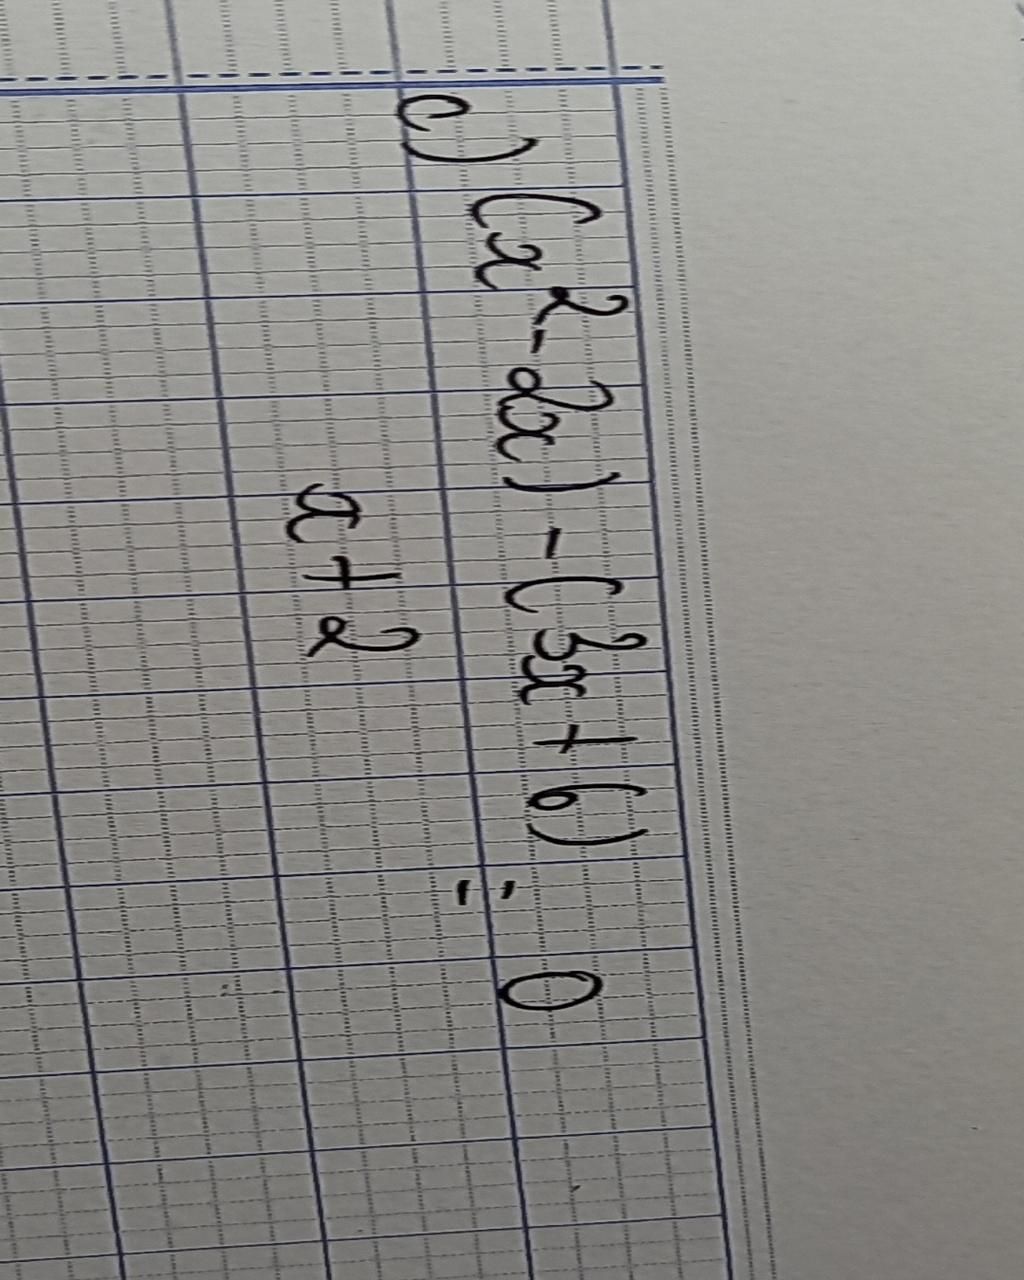 c) (x² - 2x) - (3x + 6) = 0
x + 2